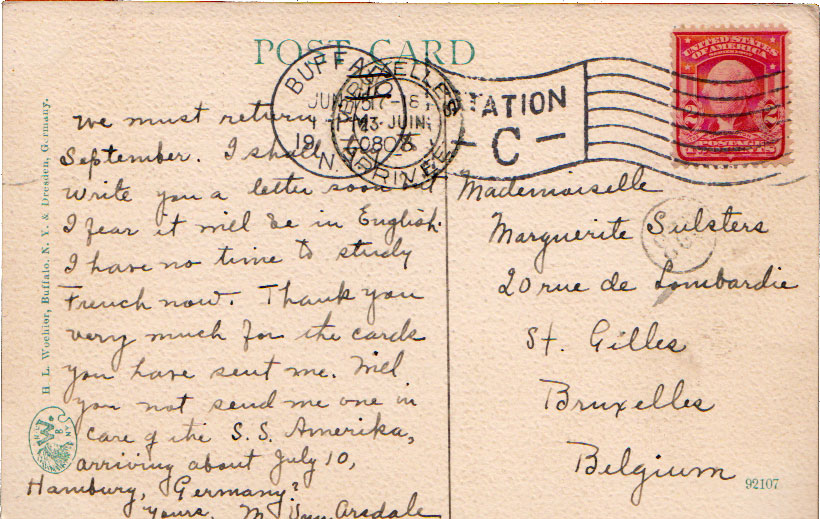 POST CARD
BUFFALO
N.Y.
STATION
C
BRUXELLES
ARRIVEE
UNITED STATES
OF AMERICA
POSTAGE
2 2
We must return
September. I shall
write you a letter soon but
I fear it will be in English.
I have no time to study
French now. Thank you
very much for the cards
you have sent me. Will
you not send me one in
care of the S.S. Amerika,
arriving about July 10,
Hamburg, Germany?
Yours, M. Van Arsdale
Mademoiselle
Marguerite Sulsters
20 rue de Lombardie
St. Gilles
Bruxelles
Belgium
92107
H. L. Woehler, Buffalo, N. Y. & Dresden, Germany.